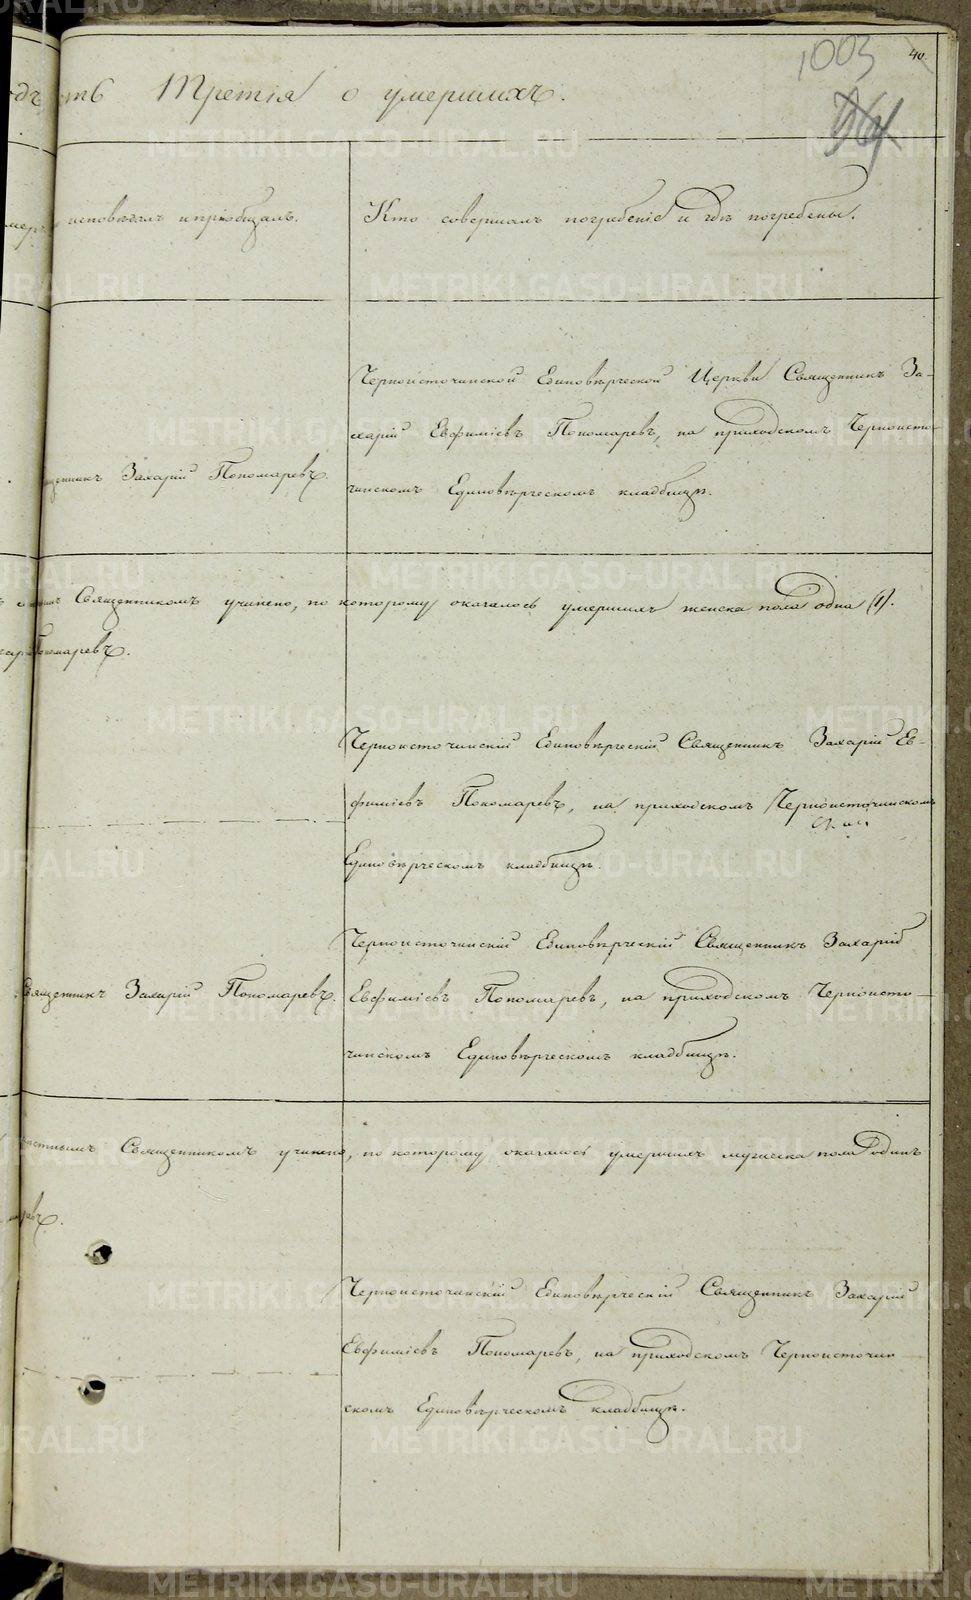 1003
40.
361
сть Третія о умершихъ.
исповѣдалъ и пріобщалъ.
Кто совершалъ погребеніе и гдѣ погребены.
Черноисточинской Единовѣрческой Церкви Священникъ За-
харій Евфиміевъ Пономаревъ, на приходскомъ Черноисто-
чинскомъ Единовѣрческомъ кладбищѣ.
щенникъ Захарій Пономаревъ.
Священникомъ учинено, по которому оказалось умершихъ женска пола одна (1).
Пономаревъ.
Черноисточинскій Единовѣрческій Священникъ Захарій Ев-
фиміевъ Пономаревъ, на приходскомъ Черноисточинскомъ
Единовѣрческомъ кладбищѣ.
Черноисточинскій Единовѣрческій Священникъ Захарій
Евфиміевъ Пономаревъ, на приходскомъ Черноисто-
чинскомъ Единовѣрческомъ кладбищѣ.
Священникъ Захарій Пономаревъ.
Священникомъ учинено, по которому оказалось умершихъ мужеска пола одинъ
ревъ.
Черноисточинскій Единовѣрческій Священникъ Захарій
Евфиміевъ Пономаревъ, на приходскомъ Черноисточин
скомъ Единовѣрческомъ кладбищѣ.
METRIKI.GASO-URAL.RU